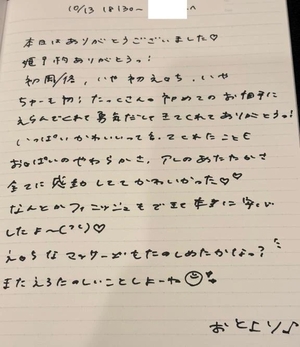 10/13 18:30~
本日はありがとうございました♡
ありがとうっ!
いや
ちゃーも初! たっくさん。初めてのお相手に
えらんでくれて勇気だして きてくれてありがとうっ!
いっぱいかわいいってき、てくれたことも
おっぱいのやわらかさ、アレのあたたかさ
全てに感動しててかわいかった♡♡
なんとかフィニッシュもできて本当に安心
したよ〜(つく)♡
えっちなマッサージもたのしめたかなっ?
またえろたのしいことしよーね☺
おとより♪